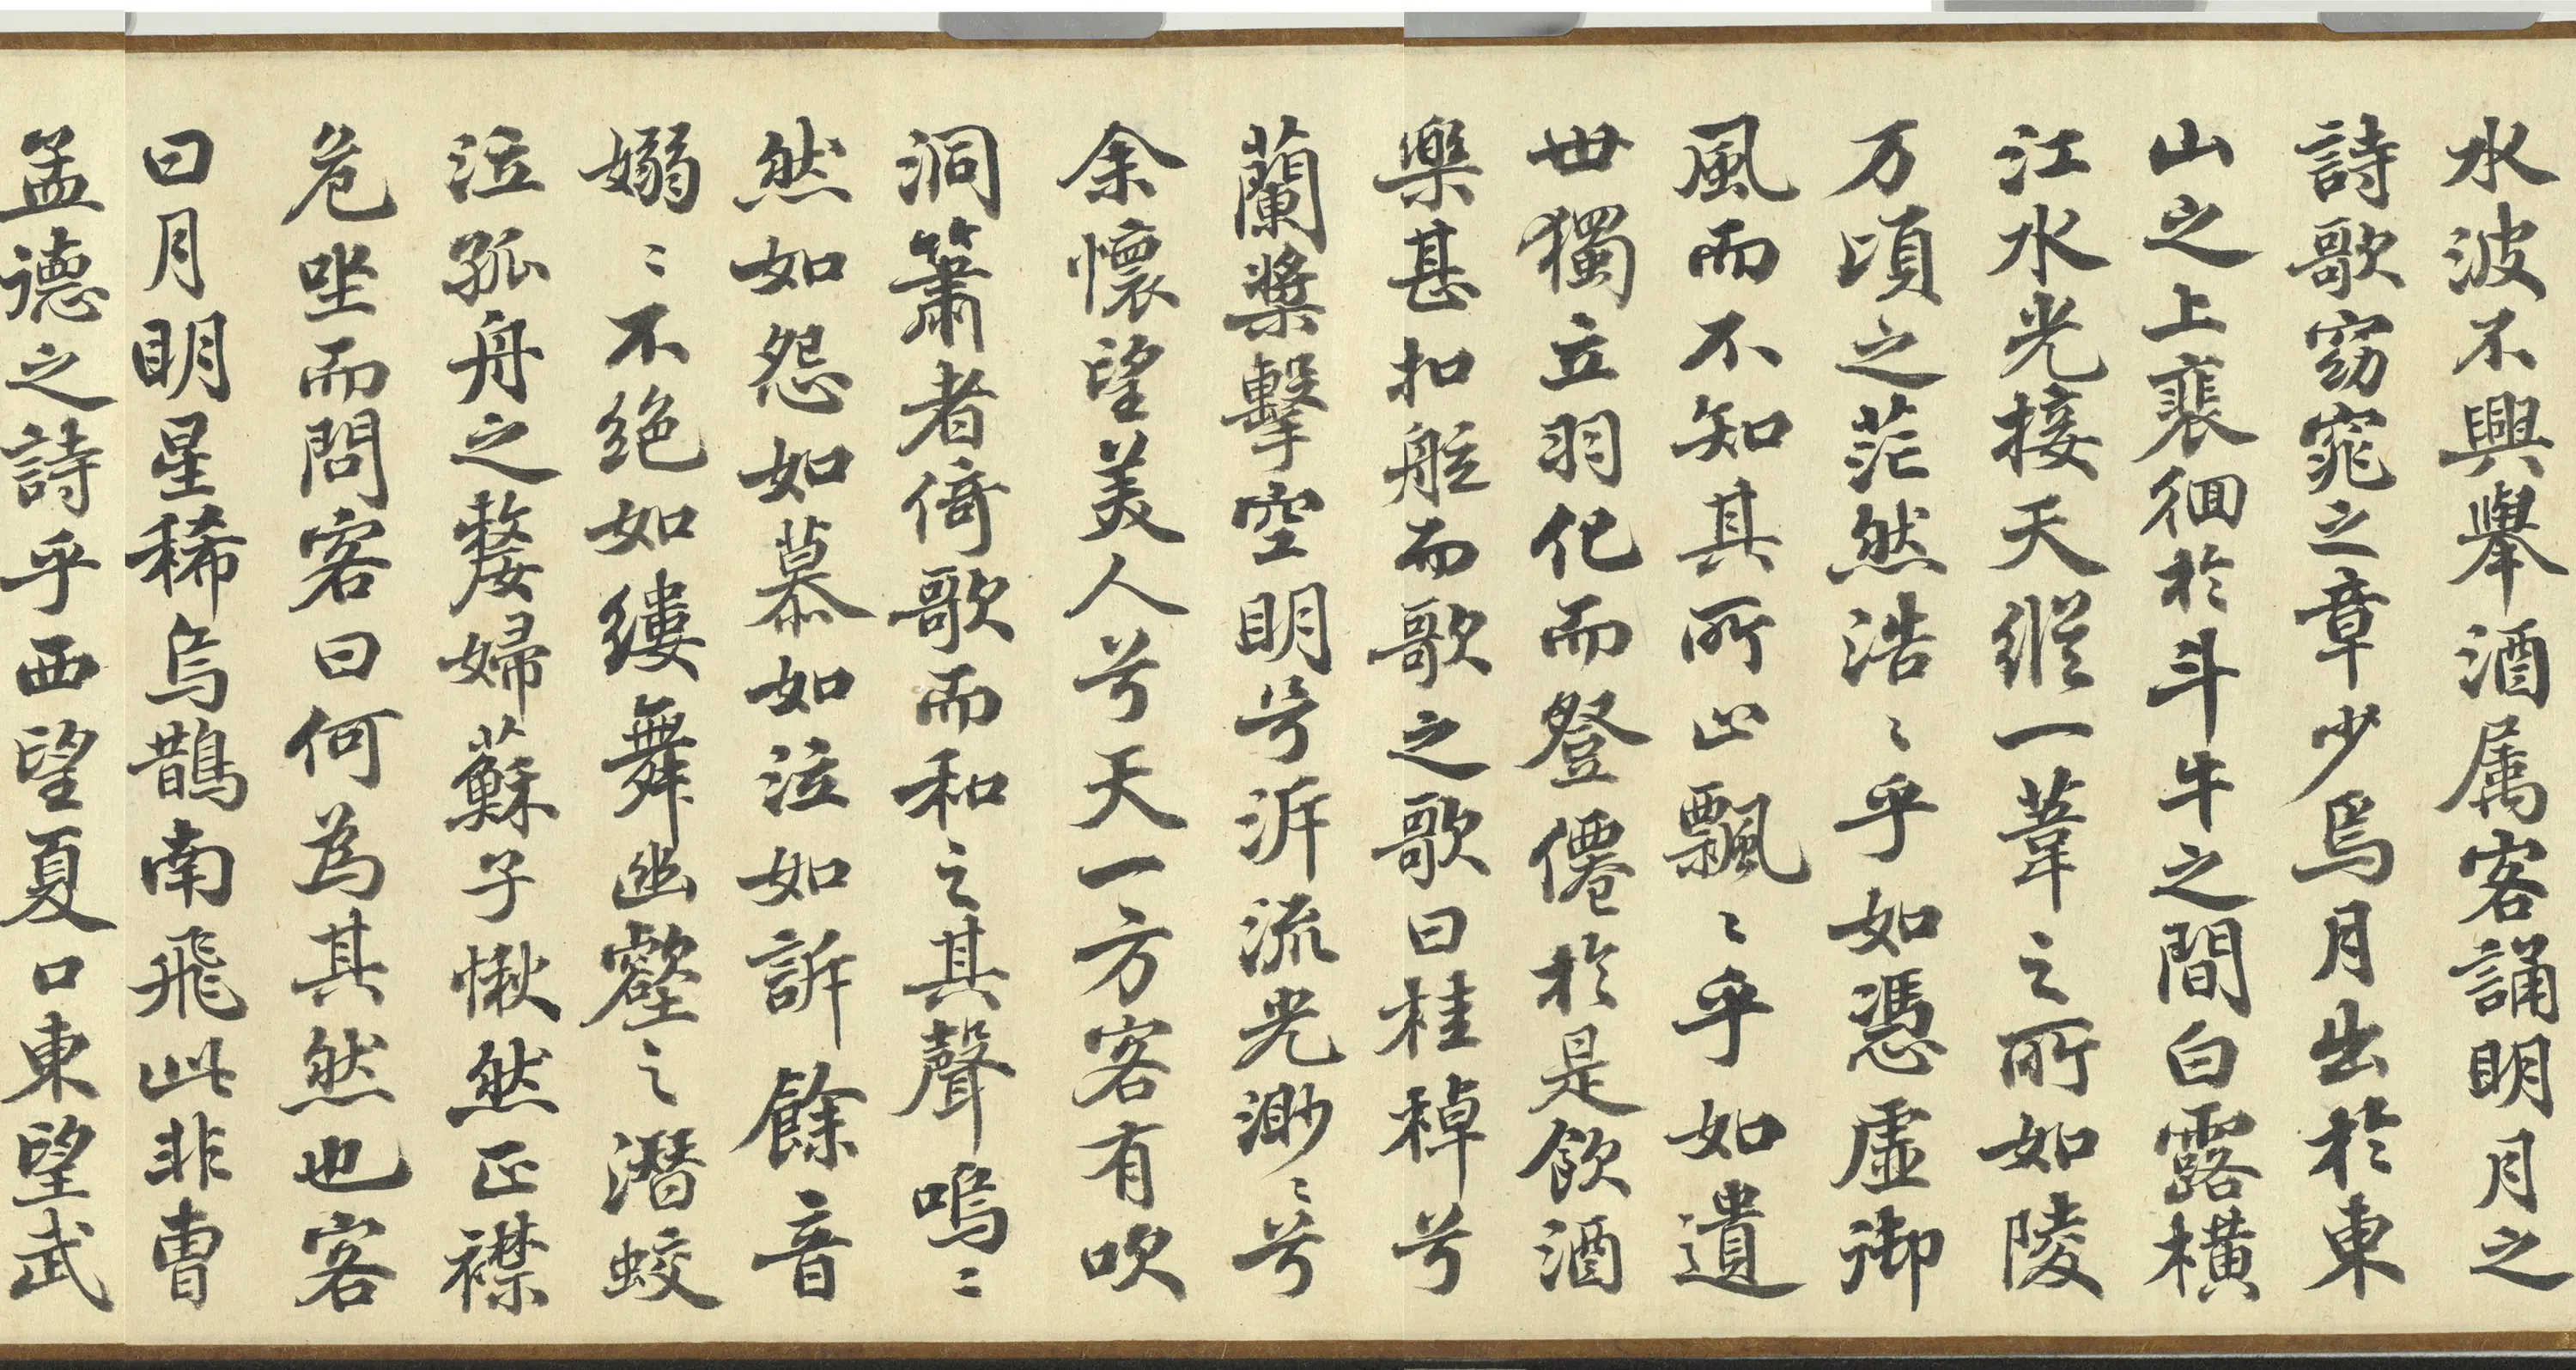 水波不興舉酒属客誦明月之
詩歌窈窕之章少焉月出於東
山之上裴徊於斗牛之間白露橫
江水光接天縱一葦之所如陵
万頃之茫然浩〻乎如憑虛御
風而不知其所止飄〻乎如遺
世獨立羽化而登僊於是飲酒
樂甚扣舷而歌之歌曰桂棹兮
蘭槳擊空明兮泝流光渺〻兮
余懷望美人兮天一方客有吹
洞簫者倚歌而和之其聲嗚〻
然如怨如慕如泣如訴餘音
嫋〻不絕如縷舞幽壑之潛蛟
泣孤舟之嫠婦蘇子愀然正襟
危坐而問客曰何為其然也客
曰月明星稀烏鵲南飛此非曹
孟德之詩乎西望夏口東望武